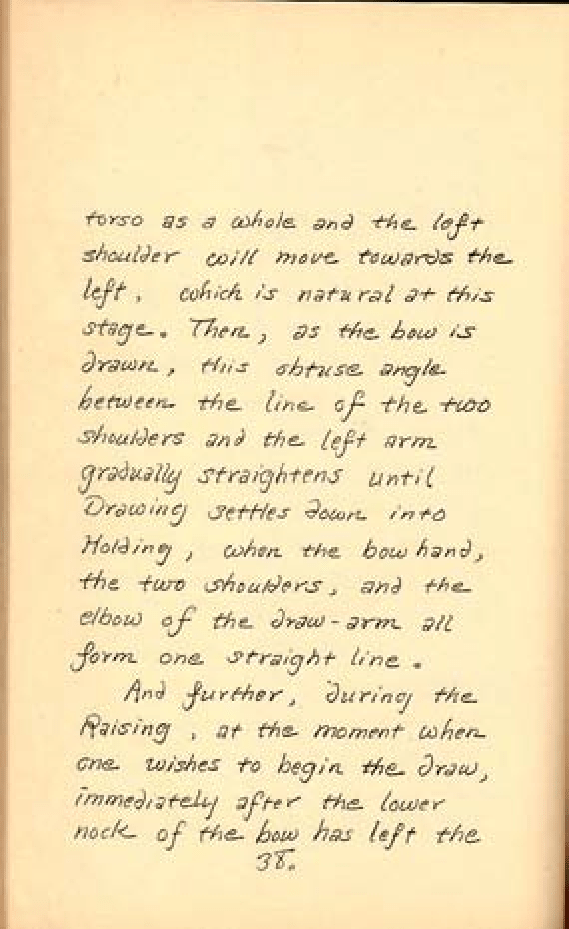 torso as a whole and the left
shoulder will move towards the
left, which is natural at this
stage. Then, as the bow is
drawn, this obtuse angle
between the line of the two
shoulders and the left arm
gradually straightens until
Drawing settles down into
Holding, when the bow hand,
the two shoulders, and the
elbow of the draw-arm all
form one straight line.
And further, during the
Raising, at the moment when
one wishes to begin the draw,
immediately after the lower
nock of the bow has left the
38.